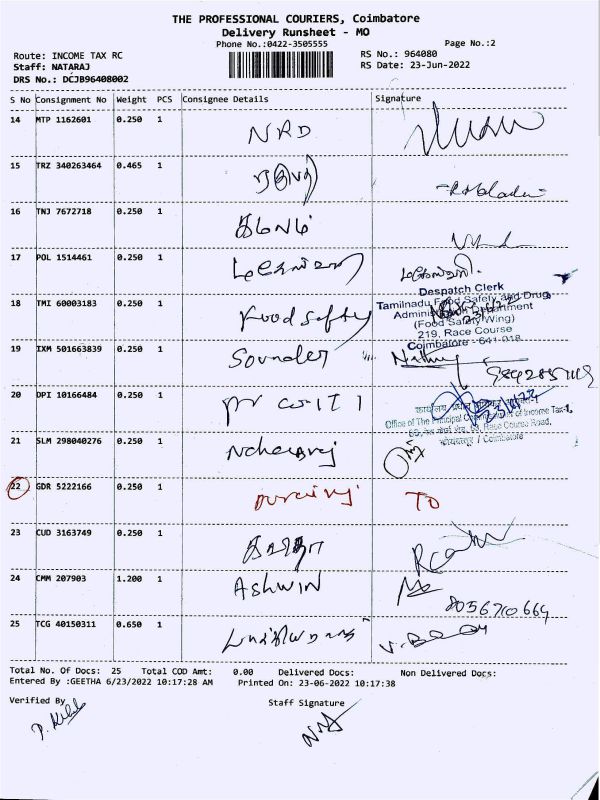 THE PROFESSIONAL COURIERS, Coimbatore
Delivery Runsheet - MO
Phone No.:0422-3505555
Page No.:2
Route: INCOME TAX RC
RS No.: 964080
Staff: NATARAJ
RS Date: 23-Jun-2022
DRS No.: DCJB96408002
S No Consignment No Weight PCS Consignee Details Signature
14 MTP 1162601 0.250 1 NRD
15 TRZ 340263464 0.465 1
16 TNJ 7672718 0.250 1
17 POL 1514461 0.250 1
Despatch Clerk
Tamilnadu Food Safety and Drug
18 TMI 60003183 0.250 1 Food Safty
Administration Department
(Food Safety Wing)
219, Race Course
Coimbatore - 641 018
19 IXM 501663839 0.250 1 Sounder
20 DPI 10166484 0.250 1
Office of The Principal Commissioner of Income Tax-1,
63, Race Course Road,
कोयम्बटूर / Coimbatore
21 SLM 298040276 0.250 1
22 GDR 5222166 0.250 1 TO
23 CUD 3163749 0.250 1
24 CMM 207903 1.200 1 ASHWIN
8056710664
25 TCG 40150311 0.650 1
Total No. Of Docs: 25 Total COD Amt: 0.00 Delivered Docs: Non Delivered Docs:
Entered By :GEETHA 6/23/2022 10:17:28 AM Printed On: 23-06-2022 10:17:38
Verified By
Staff Signature